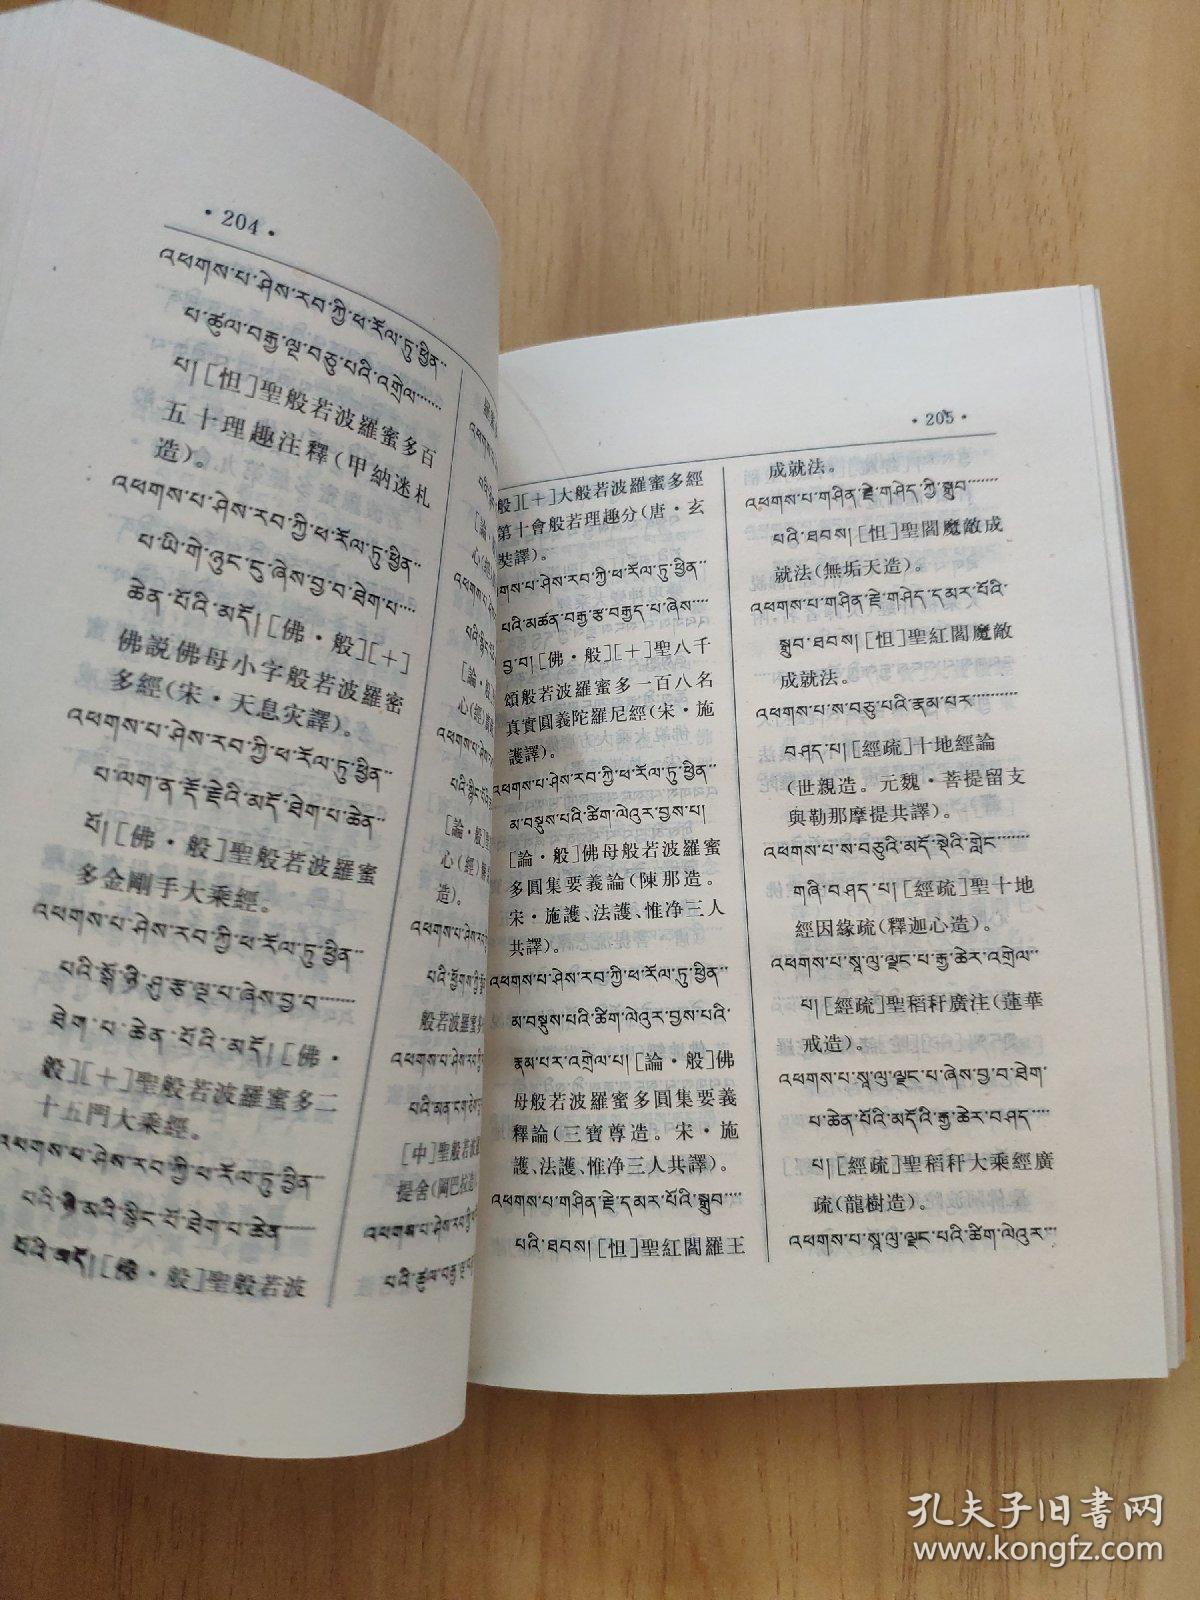 · 204 ·
འཕགས་པ་ཤེས་རབ་ཀྱི་ཕ་རོལ་ཏུ་ཕྱིན་
པ་ཚུལ་བརྒྱ་ལྔ་བཅུ་པའི་འགྲེལ་
པ། [怛]聖般若波羅蜜多百
五十理趣注釋(甲納迷札
造)。
འཕགས་པ་ཤེས་རབ་ཀྱི་ཕ་རོལ་ཏུ་ཕྱིན་
པ་ཡི་གེ་ཉུང་ངུ་ཞེས་བྱ་བ་ཐེག་པ་
ཆེན་པོའི་མདོ། [佛·般][十]
佛説佛母小字般若波羅密
多經(宋·天息灾譯)。
འཕགས་པ་ཤེས་རབ་ཀྱི་ཕ་རོལ་ཏུ་ཕྱིན་
པ་ལག་ན་རྡོ་རྗེའི་མདོ་ཐེག་པ་ཆེན་
པོ། [佛·般]聖般若波羅蜜
多金剛手大乘經。
འཕགས་པ་ཤེས་རབ་ཀྱི་ཕ་རོལ་ཏུ་ཕྱིན་
པའི་སྒོ་ཉི་ཤུ་རྩ་ལྔ་པ་ཞེས་བྱ་བ་
ཐེག་པ་ཆེན་པོའི་མདོ། [佛·
般][十]聖般若波羅蜜多二
十五門大乘經。
འཕགས་པ་ཤེས་རབ་ཀྱི་ཕ་རོལ་ཏུ་ཕྱིན་
པོའི་མདོ། [佛·般]聖般若波
· 205 ·
般][十]大般若波羅蜜多經
第十會般若理趣分(唐·玄
奘譯)。
གས་པ་ཤེས་རབ་ཀྱི་ཕ་རོལ་ཏུ་ཕྱིན་
པའི་མཚན་བརྒྱ་རྩ་བརྒྱད་པ་ཞེས་
བྱ་བ། [佛·般][十]聖八千
頌般若波羅蜜多一百八名
真實圓義陀羅尼經(宋·施
護譯)。
འཕགས་པ་ཤེས་རབ་ཀྱི་ཕ་རོལ་ཏུ་ཕྱིན་
མ་བསྡུས་པའི་ཚིག་ལེའུར་བྱས་པ།
[論·般]佛母般若波羅蜜
多圓集要義論(陳那造。
宋·施護、法護、惟净三人
共譯)。
འཕགས་པ་ཤེས་རབ་ཀྱི་ཕ་རོལ་ཏུ་ཕྱིན་
མ་བསྡུས་པའི་ཚིག་ལེའུར་བྱས་པའི་
རྣམ་པར་འགྲེལ་པ། [論·般]佛
母般若波羅蜜多圓集要義
釋論(三寶尊造。宋·施
護、法護、惟净三人共譯)。
འཕགས་པ་གཤིན་རྗེ་དམར་པོའི་སྒྲུབ་
པའི་ཐབས། [怛]聖紅閻羅王
成就法。
འཕགས་པ་གཤིན་རྗེ་གཤེད་ཀྱི་སྒྲུབ་
པའི་ཐབས། [怛]聖閻魔敵成
就法(無垢天造)。
འཕགས་པ་གཤིན་རྗེ་གཤེད་དམར་པོའི་
སྒྲུབ་ཐབས། [怛]聖紅閻魔敵
成就法。
འཕགས་པ་ས་བཅུ་པའི་རྣམ་པར་
བཤད་པ། [經疏]十地經論
(世親造。元魏·菩提留支
與勒那摩提共譯)。
འཕགས་པ་ས་བཅུའི་མདོ་སྡེའི་གླེང་
གཞི་བཤད་པ། [經疏]聖十地
經因緣疏(釋迦心造)。
འཕགས་པ་སཱ་ལུ་ལྗང་པ་རྒྱ་ཆེར་འགྲེལ་
པ། [經疏]聖稻秆廣注(蓮華
戒造)。
འཕགས་པ་སཱ་ལུ་ལྗང་པ་ཞེས་བྱ་བ་ཐེག་
པ་ཆེན་པོའི་མདོའི་རྒྱ་ཆེར་བཤད་
པ། [經疏]聖稻秆大乘經廣
疏(龍樹造)。
འཕགས་པ་སཱ་ལུ་ལྗང་པའི་ཚིག་ལེའུར་
孔夫子旧书网
www.kongfz.com